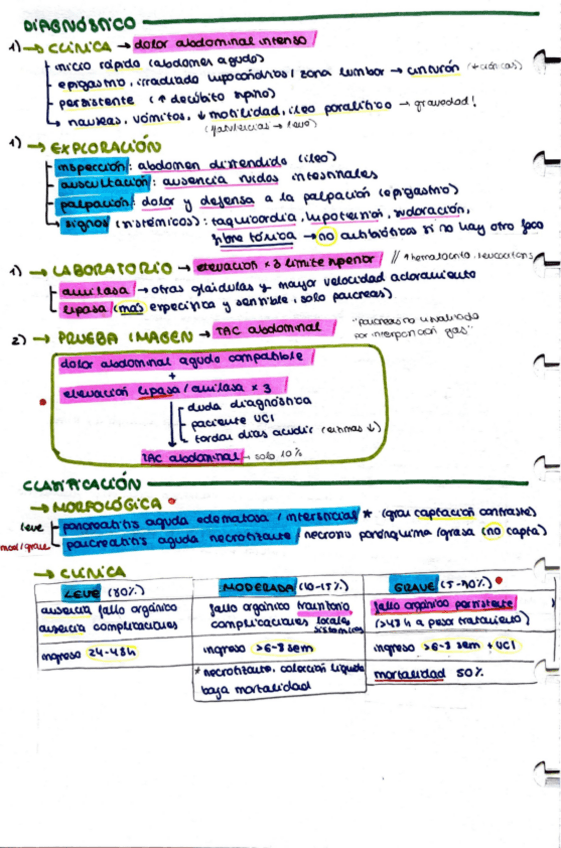 DIAGNÓSTICO
1) → CLÍNICA → dolor abdominal intenso
inicio rápido (abdomen agudo)
epigastrio, irradiado hipocondrios / zona lumbar → cinturón (↓ crónicas)
persistente (↑ decúbito supino)
náuseas, vómitos, ↓ motilidad, íleo paralítico → gravedad!
(flatulencias → leve)
1) → EXPLORACIÓN
inspección: abdomen distendido (íleo)
auscultación: ausencia ruidos intestinales
palpación: dolor y defensa a la palpación (epigastrio)
signos (sistémicos): taquicardia, hipotensión, sudoración,
fiebre tóxica → no antibióticos si no hay otro foco
1) → LABORATORIO → elevación x3 límite superior // ↑ hematocrito, leucocitosis
amilasa → otras glándulas y mayor velocidad aclaramiento
lipasa (más específica y sensible, solo páncreas)
2) → PRUEBA IMAGEN → TAC abdominal "páncreas no visualizado
por interposición gas"
dolor abdominal agudo compatible
+
elevación lipasa / amilasa x3
duda diagnóstica
paciente UCI
tardar días acudir (enzimas ↓)
TAC abdominal → solo 10%
CLASIFICACIÓN
→ MORFOLÓGICA
leve pancreatitis aguda edematosa / intersticial * (gran captación contraste)
mod/grave pancreatitis aguda necrotizante / necrosis parénquima / grasa (no capta)
→ CLÍNICA
LEVE (80%) MODERADA (10-15%) GRAVE (5-10%)
ausencia fallo orgánico fallo orgánico transitorio fallo orgánico persistente
ausencia complicaciones complicaciones locales sistémicas (>48h a pesar tratamiento)
ingreso 24-48h ingreso >6-8 sem ingreso >6-8 sem + UCI
* necrotizante, colección líquida mortalidad 50%
baja mortalidad